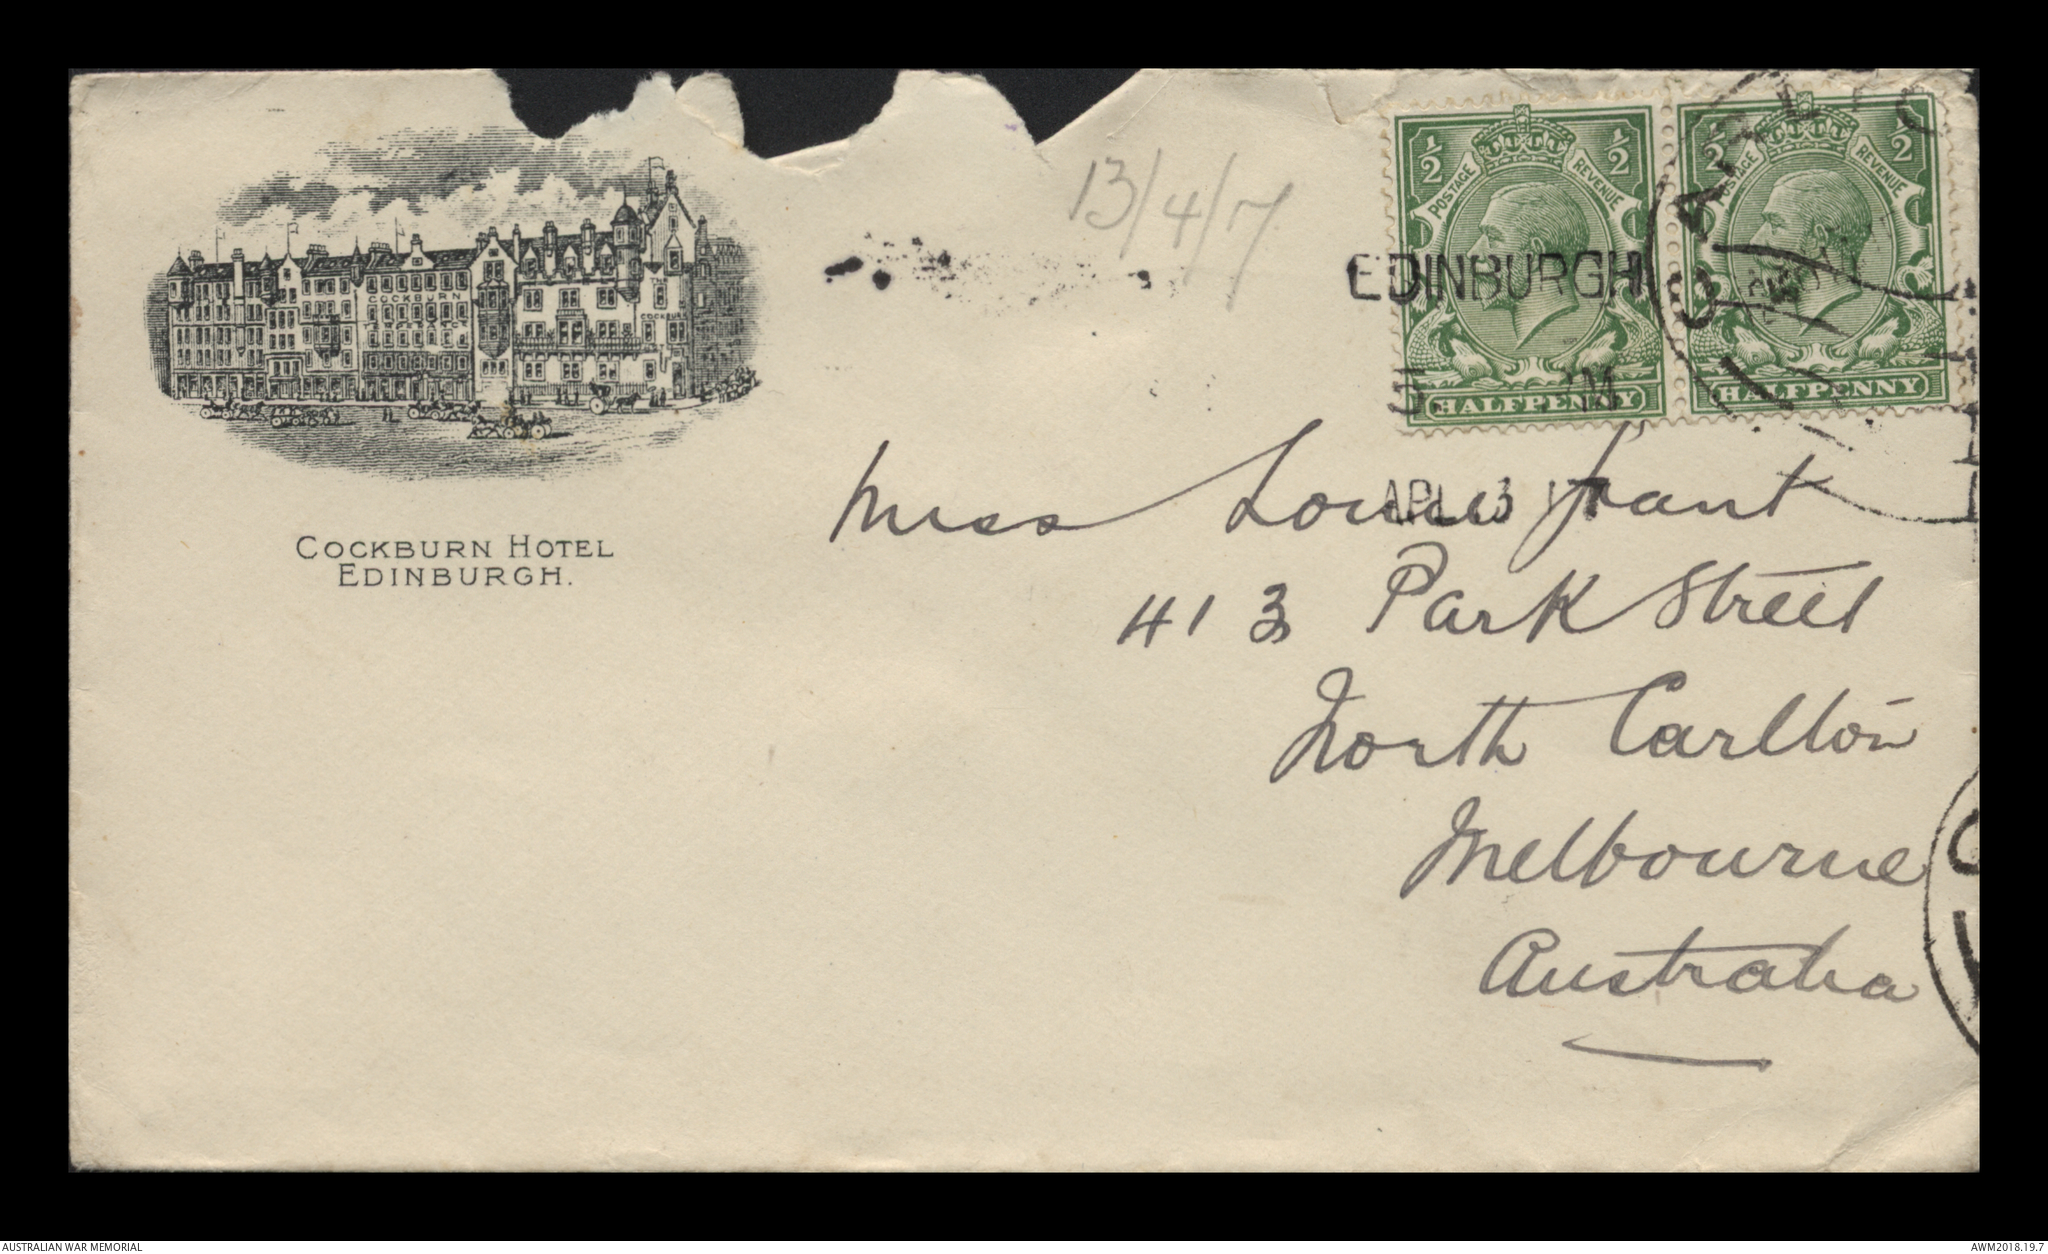 13/4/17
½ ½
POSTAGE REVENUE
HALFPENNY
½ ½
POSTAGE REVENUE
HALFPENNY
EDINBURGH
APL 13 17
CARLTO
COCKBURN
TEMPERANCE
COCKBURN
COCKBURN HOTEL
EDINBURGH.
Miss Louie Grant
413 Park Street
North Carlton
Melbourne
Australia
AUSTRALIAN WAR MEMORIAL
AWM2018.19.7